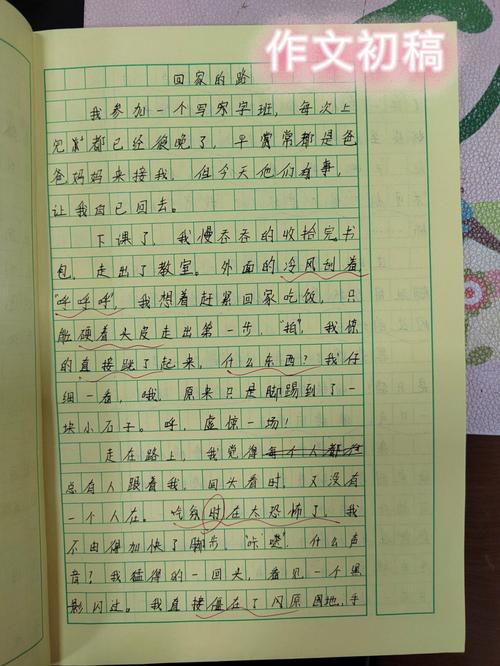 作文初稿
回家的路
我参加一个写宋字班，每次上
完都已经很晚了，平常常都是爸
爸妈妈来接我。但今天他们有事，
让我自己回去。
下课了，我慢吞吞的收拾完书
包，走出了教室。外面的冷风刮着
"呼呼呼"，我想着赶紧回家吃饭，只
能硬着头皮走出第一步，"拍"，我惊
的直接跳了起来，什么东西？我仔
细一看，哦，原来只是脚踢到了一
块小石子。呼，虚惊一场！
走在路上，我觉得每个人都
总有人跟着我。回头看时，又没有
一个人在。吃饭时在太恐怖了，我
不由得加快了脚步。"咔哒"，什么声
音？我猛得的一回头，看见一个黑
影闪过。我直接僵在了原地，手